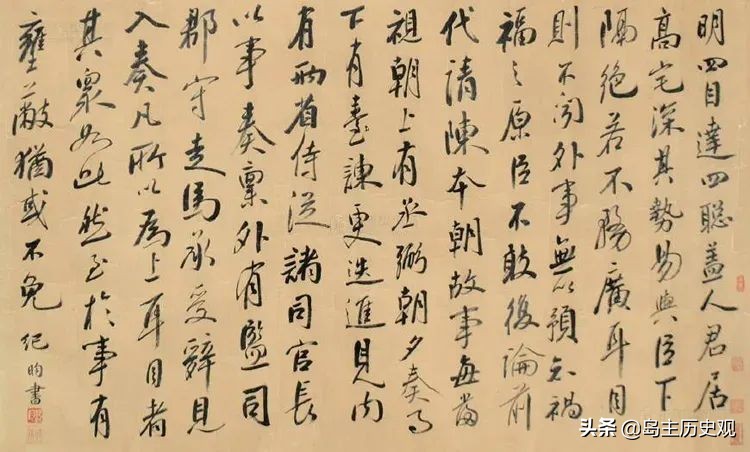 明四目達四聰蓋人君居
高宅深其勢易與臣下
隔絕若不務廣耳目
則不聞外事無以預知禍
福之原臣不敢復論前
代請陳本朝故事每當
視朝上有丞弼朝夕奏事
下有臺諫更迭進見內
有兩省侍從諸司官長
以事奏稟外有監司
郡守走馬承受辭見
入奏凡所以為上耳目者
其眾如此然至於事有
壅蔽猶或不免 紀昀書
头条 @岛主历史观